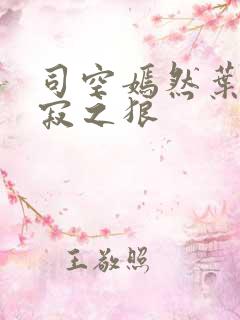 司空嫣然葉
寂之狠
王敬照